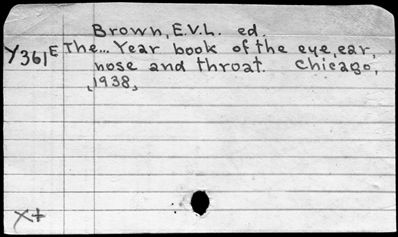 Brown, E.V.L. ed.
Y361E The... Year book of the eye, ear,
nose and throat. Chicago,
[1938]
X+